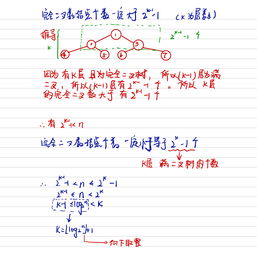 完全二叉树结点个数一定大于 2^{k-1}-1 (k为层高)
推导
k
1
2 3
4 5 6 7
2^{k-1}-1 个
因为有K层且为完全二叉树, 所以(k-1)层为满
二叉, 所以(k-1)层有 2^{k-1}-1 个, 所以 k层
的完全二叉数大于有 2^{k-1}-1 个
∴有 2^{k-1}-1<n
完全二叉树结点个数一定 2^k-1个
K层 满二叉树的个数
∴ 2^{k-1}-1 < n ≤ 2^k-1
2^{k-1} ≤ n < 2^k
k-1 ≤ log_2^n < k
K=⌊log_2^n⌋+1
向下取整